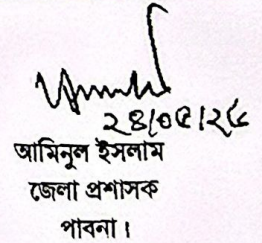 ২৪/০৫/২৬
আমিনুল ইসলাম
জেলা প্রশাসক
পাবনা।